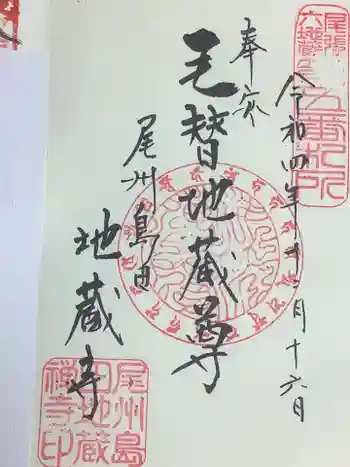 尾張
六地蔵
五番札所
奉拝
令和四年十二月十六日
毛替地蔵尊
尾州鳥田
地蔵寺
尾州島
田地蔵
禅寺印